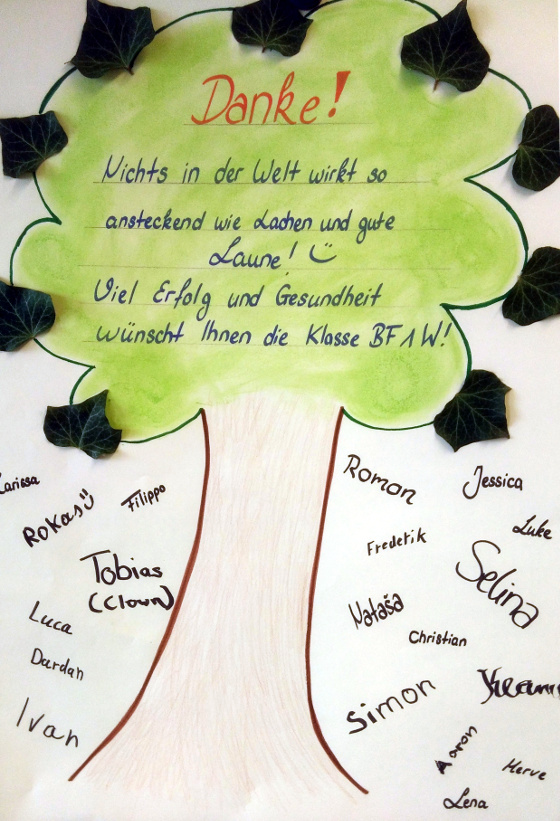 Danke!
Nichts in der Welt wirkt so
ansteckend wie Lachen und gute
Laune! ☺
Viel Erfolg und Gesundheit
wünscht Ihnen die Klasse BF1W!
Larissa
Rokas ☺
Filippo
Tobias
(Clown)
Luca
Dardan
Ivan
Roman
Jessica
Luke
Frederik
Selina
Nataša
Christian
Simon
Aaron
Herve
Lena